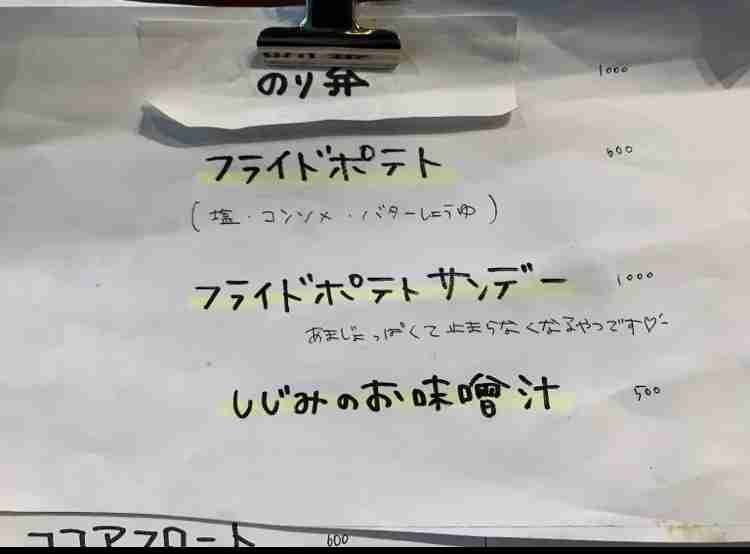 のり弁 1000
フライドポテト 600
(塩・コンソメ・バターしょうゆ)
フライドポテトサンデー 1000
あまじょっぱくて止まらなくなるやつです♡
しじみのお味噌汁 500
ココアフロート 600